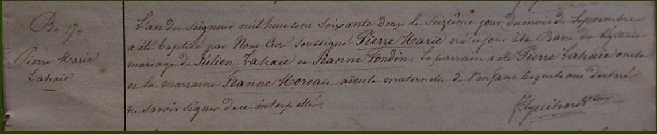 B. 17.
Pierre Marie
Lahaie
L'an du Seigneur mil huit cent soixante douze le seizième jour du mois de Septembre
a été baptisé par Nous Curé soussigné Pierre Marie né ce jour à la Barre du légitime
mariage de Julien Lahaie et Jeanne Le parrain a été Pierre Lahaie oncle
et la marraine Jeanne Moreau aïeule maternelle de l'enfant lesquels ont déclaré
ne savoir signer de ce interpellé.